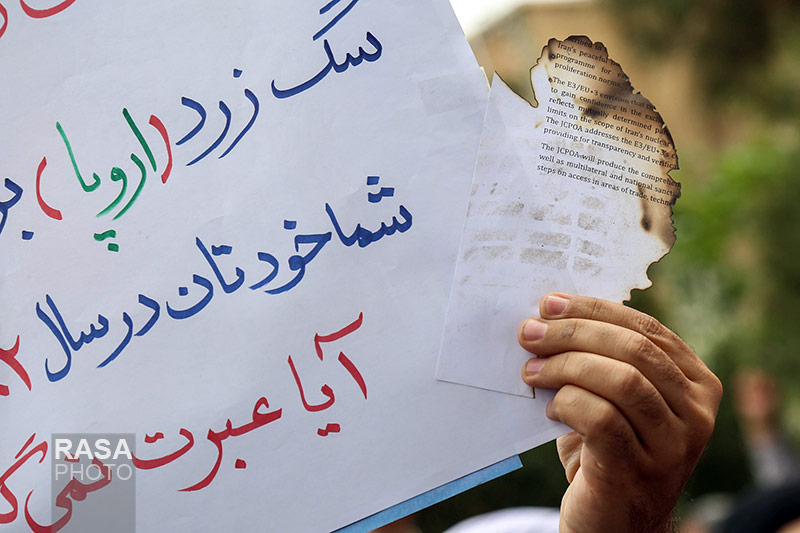 سگ زرد (اروپا) بر
شما خودتان در سال ۲
آیا عبرت نمی گ
Iran's peaceful
programme for
proliferation norm
The E3/EU+3 envision that
to gain confidence in the
reflects mutually determined
limits on the scope of Iran's nuclear
The JCPOA addresses the E3/EU+3's
providing for transparency and verific
The JCPOA will produce the comprehe
well as multilateral and national sanct
steps on access in areas of trade, techn
RASA
PHOTO